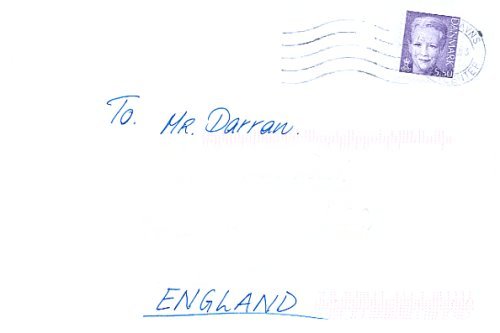 DANMARK
5.50
To. Mr. Darran.
ENGLAND